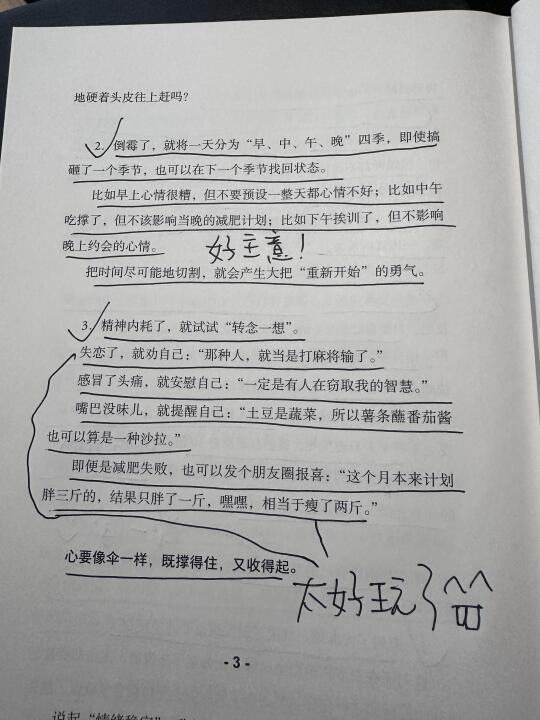 地硬着头皮往上赶吗？
2. 倒霉了，就将一天分为“早、中、午、晚”四季，即使搞
砸了一个季节，也可以在下一个季节找回状态。
比如早上心情很糟，但不要预设一整天都心情不好；比如中午
吃撑了，但不该影响当晚的减肥计划；比如下午挨训了，但不影响
晚上约会的心情。
好主意！
把时间尽可能地切割，就会产生大把“重新开始”的勇气。
3. 精神内耗了，就试试“转念一想”。
失恋了，就劝自己：“那种人，就当是打麻将输了。”
感冒了头痛，就安慰自己：“一定是有人在窃取我的智慧。”
嘴巴没味儿，就提醒自己：“土豆是蔬菜，所以薯条蘸番茄酱
也可以算是一种沙拉。”
即便是减肥失败，也可以发个朋友圈报喜：“这个月本来计划
胖三斤的，结果只胖了一斤，嘿嘿，相当于瘦了两斤。”
心要像伞一样，既撑得住，又收得起。
太好玩了
- 3 -
说起“情绪稳定”，